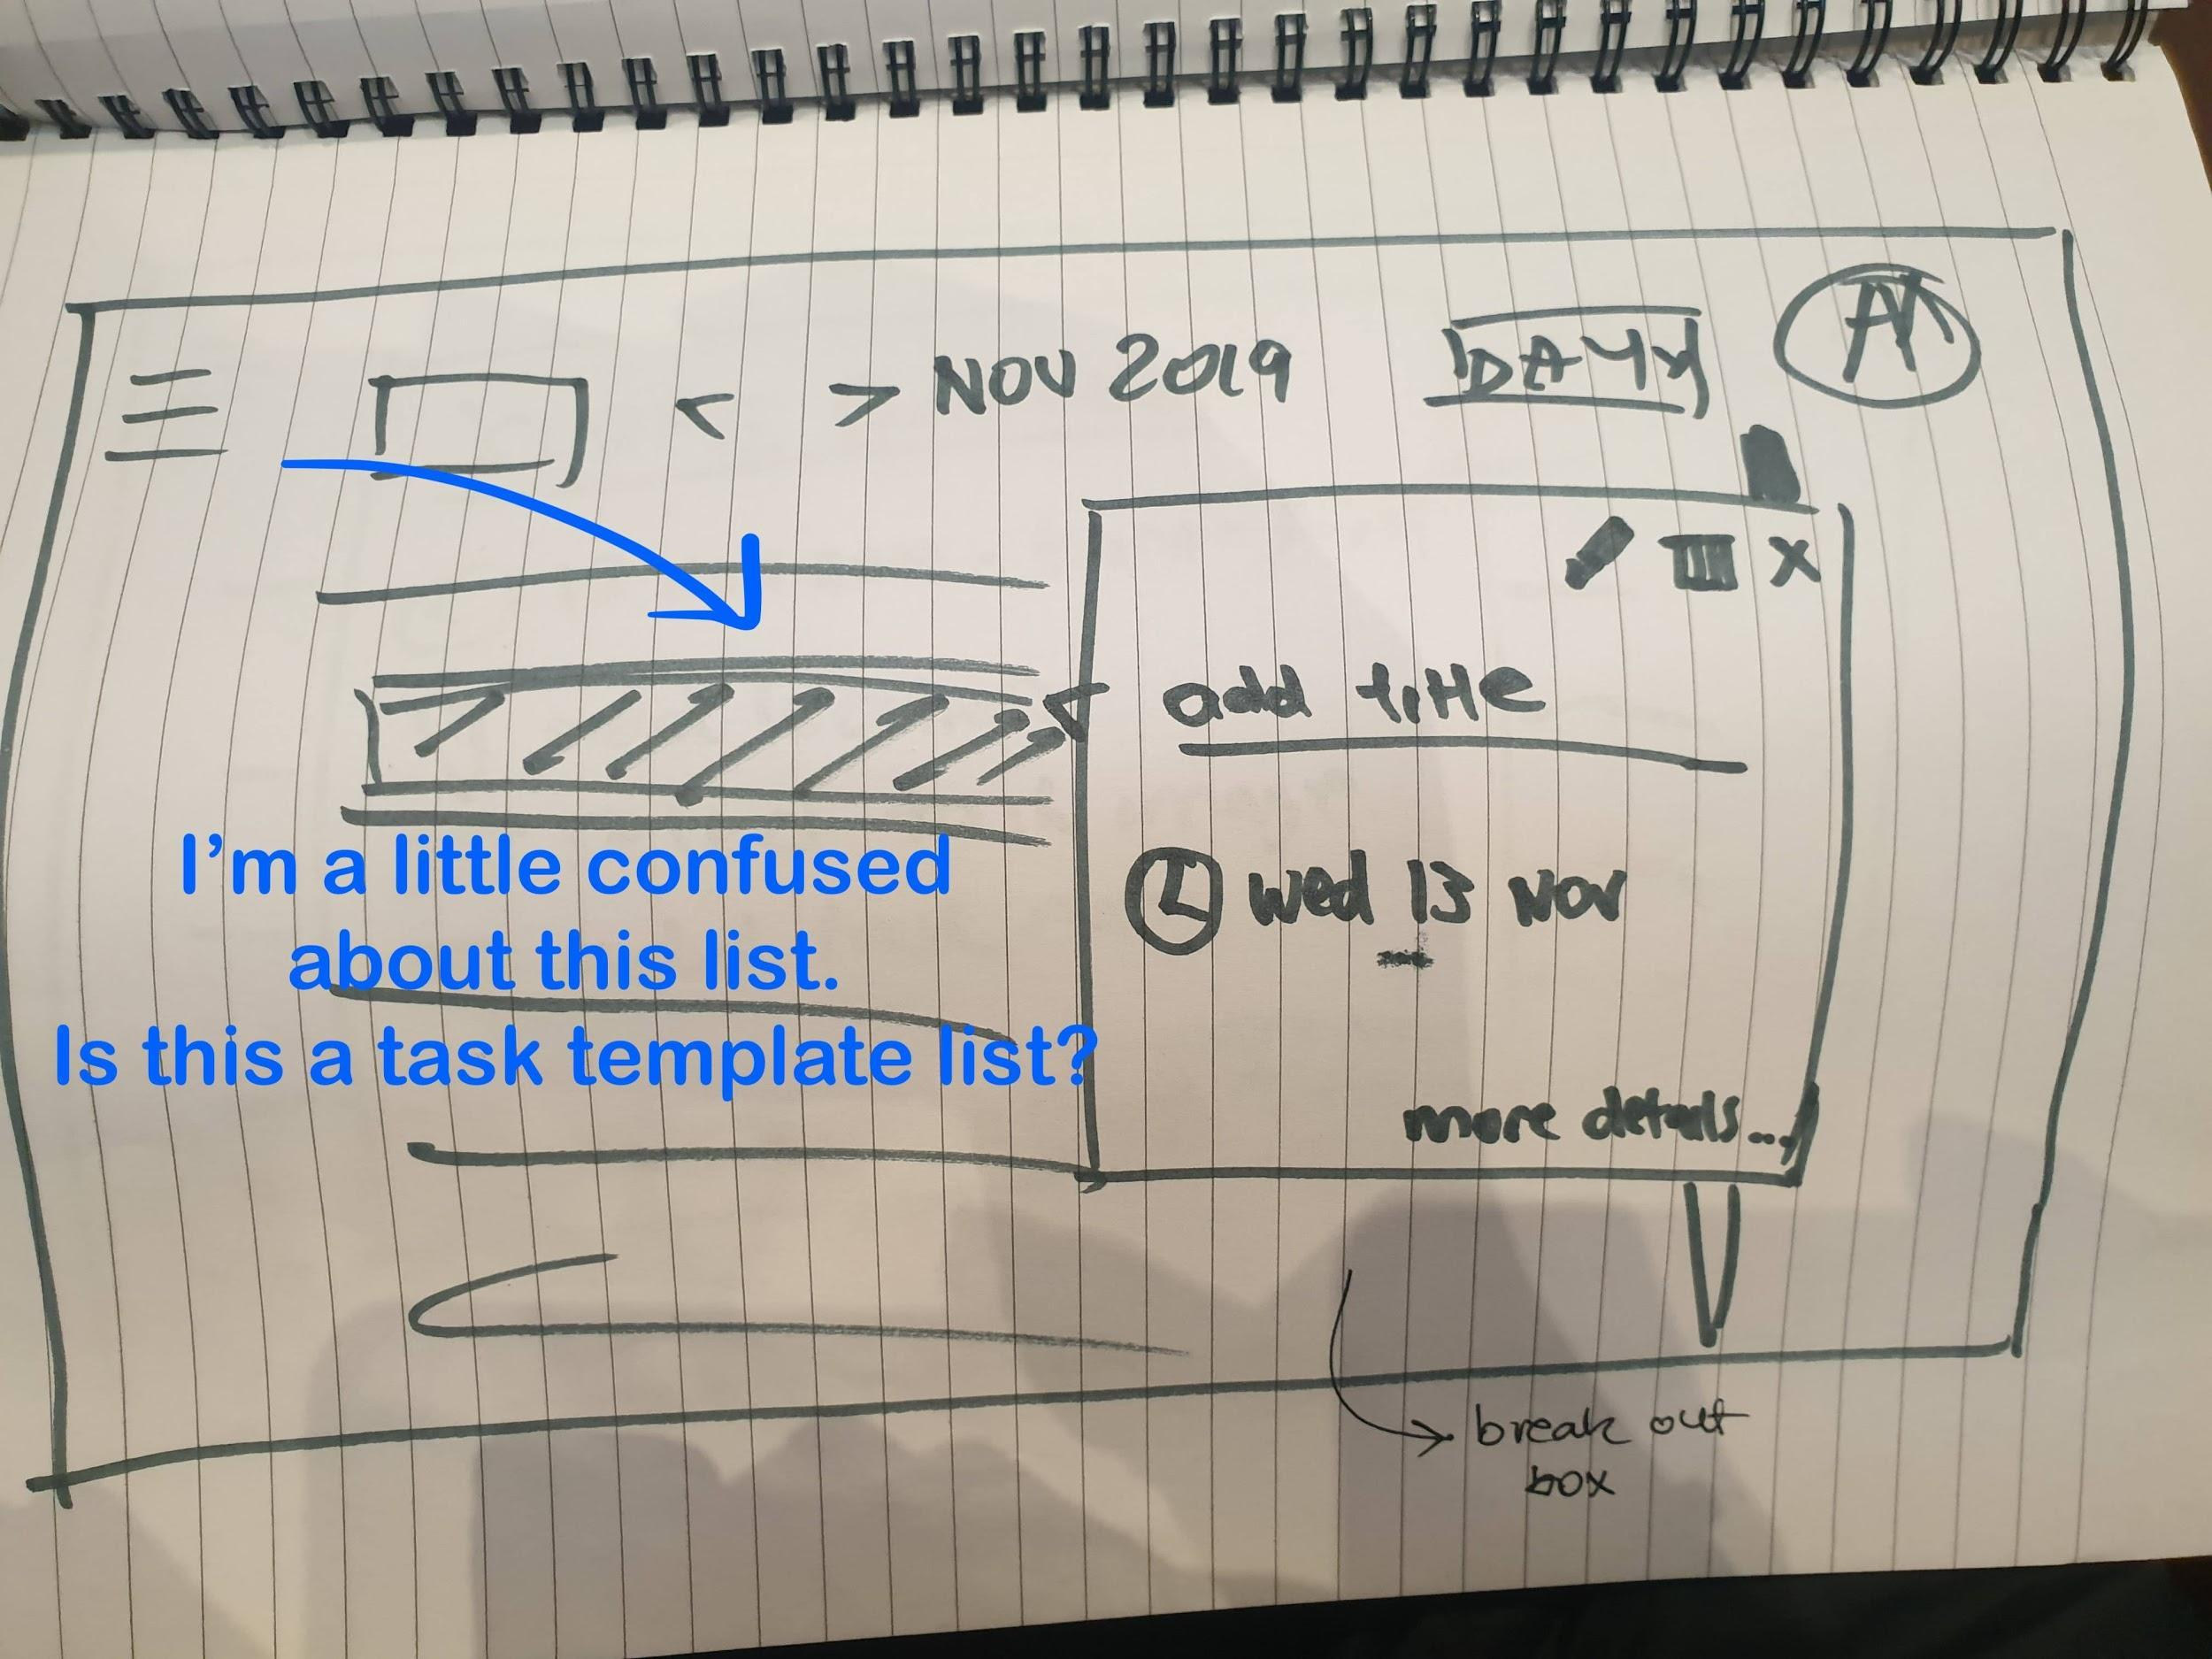 < > NOV 2019
DAY
add title
Wed 13 Nov
I'm a little confused
about this list.
Is this a task template list?
more details...
break out
box